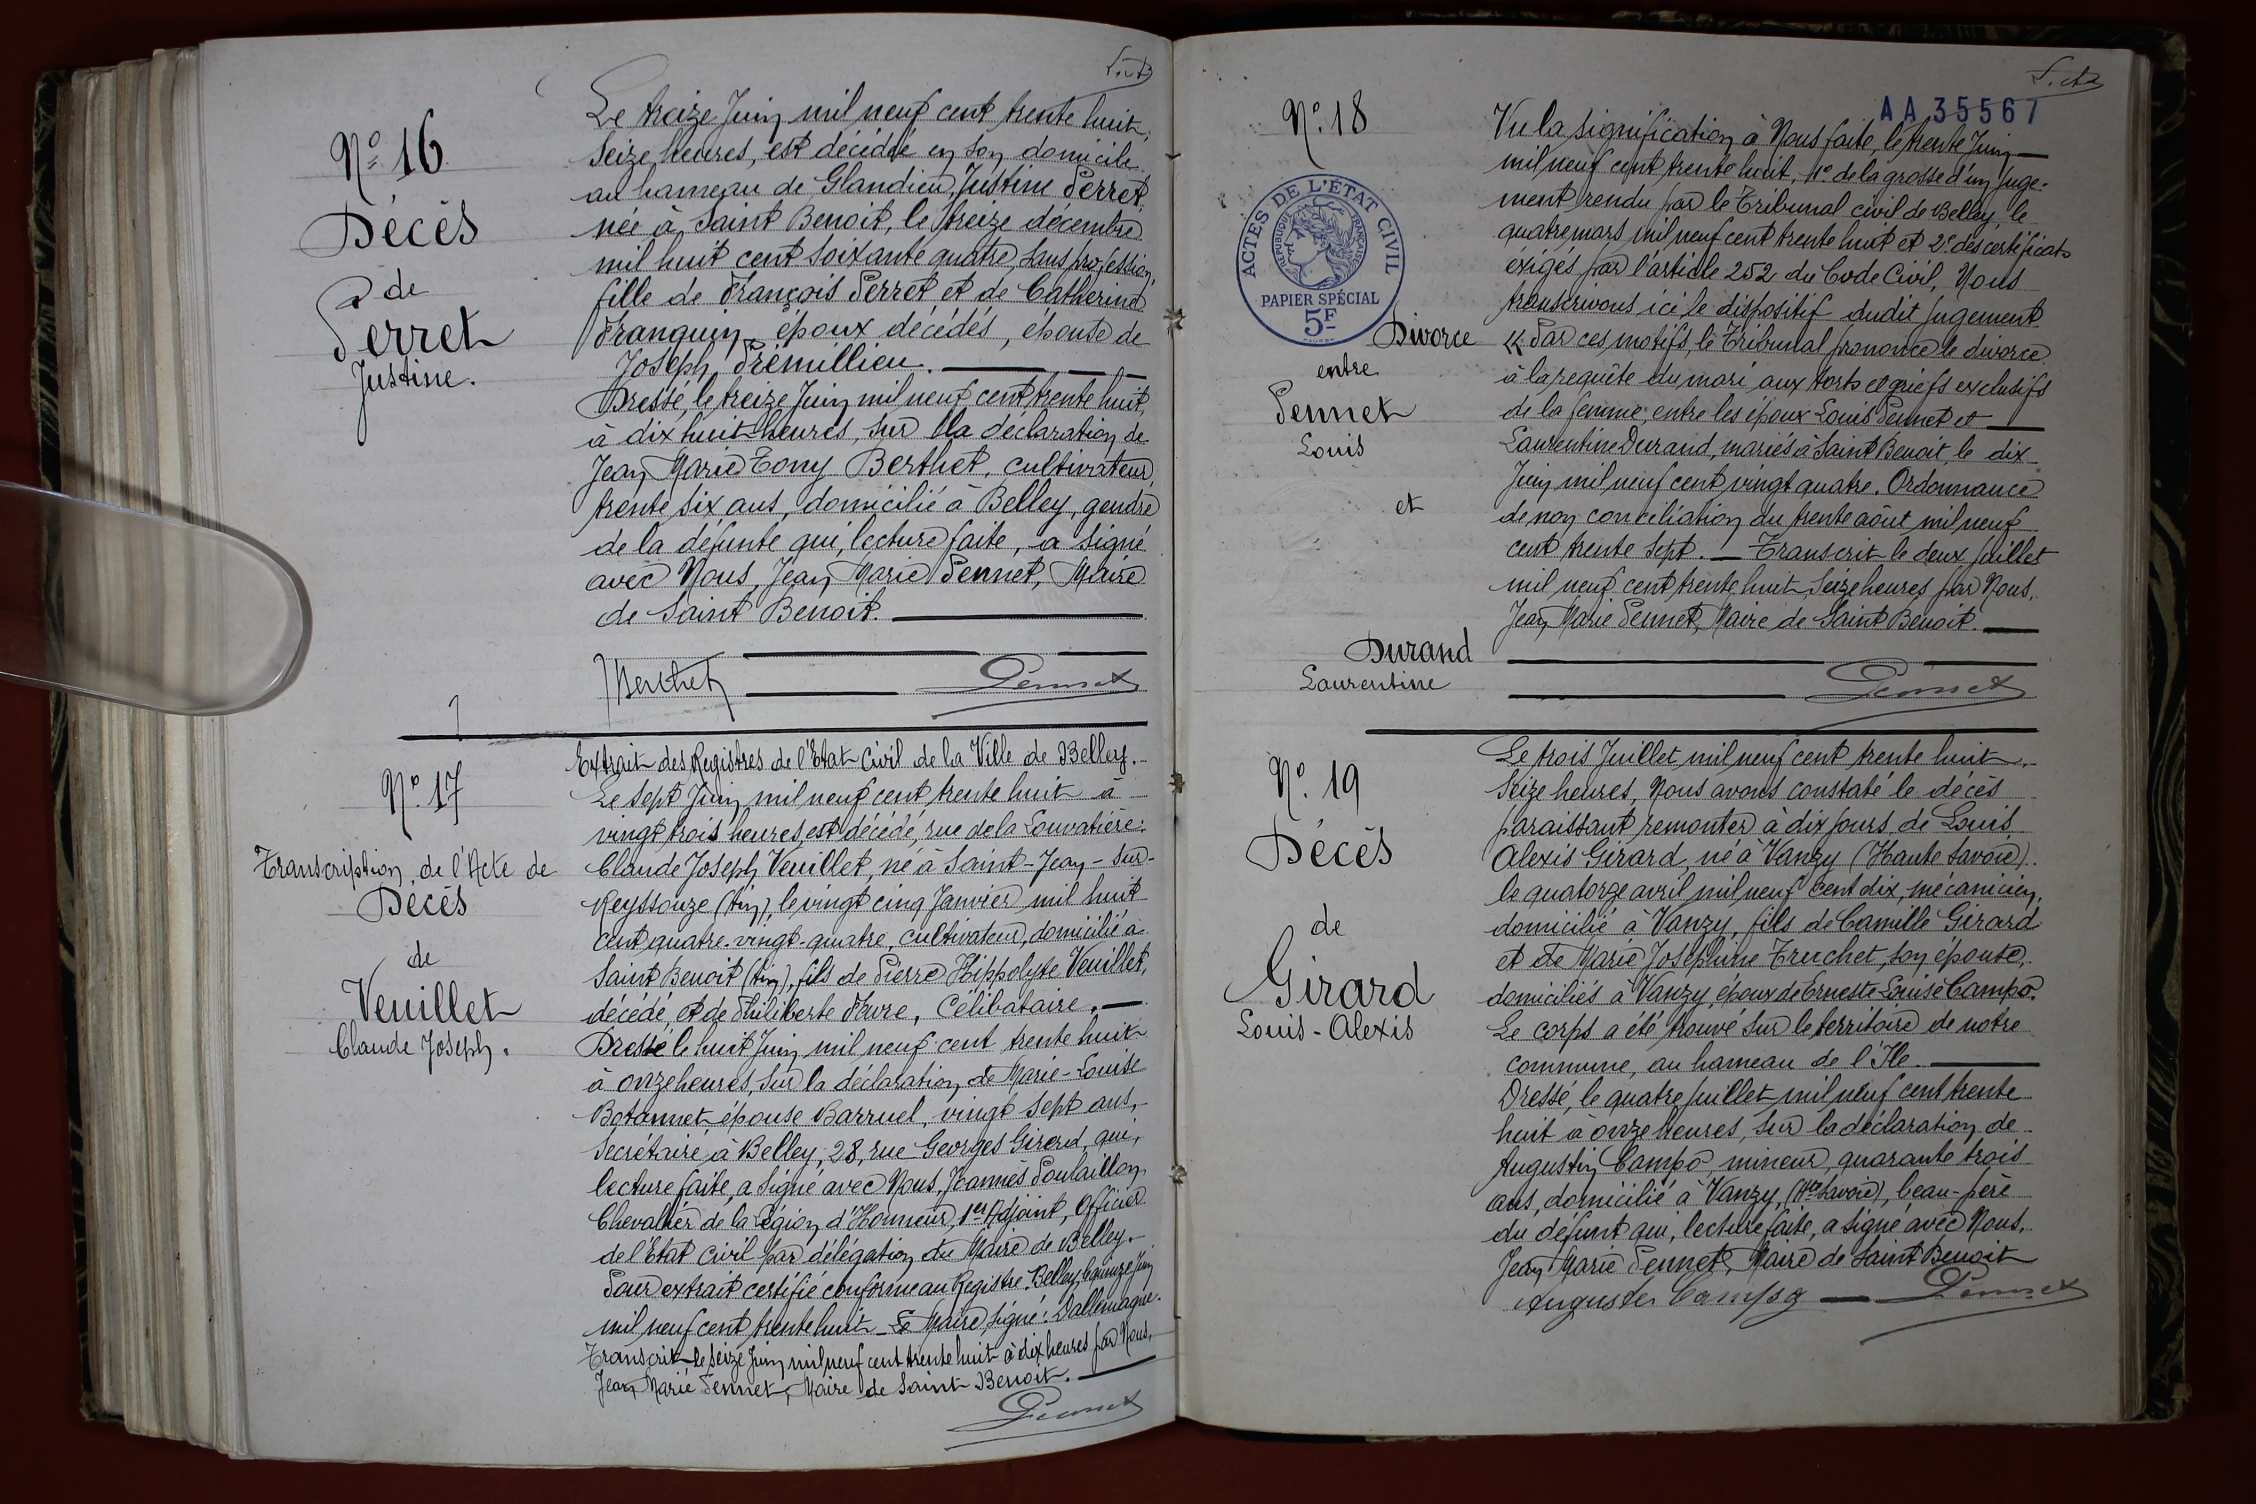 Nº 16
Décès
de
Perret
Justine.
Le treize Juin mil neuf cent trente huit,
seize heures, est décédée en son domicile
au hameau de Glandieu, Justine Perret,
née à Saint Benoit, le treize décembre
mil huit cent soixante quatre, sans profession,
fille de François Perret et de Catherine
Franquin, époux décédés, épouse de
Joseph Prémillieu.
Dressé, le treize Juin mil neuf cent trente huit,
à dix huit heures, sur la déclaration de
Jean Marie Tony Berthet, cultivateur,
trente six ans, domicilié à Belley, gendre
de la défunte qui, lecture faite, a signé
avec Nous, Jean Marie Pennet, Maire
de Saint Benoit.
Berthet Pennet
Nº 17
Transcription de l'Acte de
Décès
de
Veuillet
Claude Joseph.
Extrait des Registres de l'Etat Civil de la Ville de Belley.
Le sept Juin mil neuf cent trente huit à
vingt trois heures, est décédé, rue de la Louvatière:
Claude Joseph Veuillet, né à Saint-Jean-sur-
Reyssouze (Ain), le vingt cinq Janvier mil huit
cent quatre-vingt-quatre, cultivateur, domicilié à
Saint Benoit (Ain), fils de Pierre Hippolyte Veuillet,
décédé, et de Philiberte Fèvre, Célibataire.
Dressé le huit Juin mil neuf cent trente huit
à onze heures, sur la déclaration de Marie-Louise
Botannet épouse Barruel, vingt sept ans,
Secrétaire à Belley, 28, rue Georges Girerd, qui,
lecture faite, a signé avec Nous, Joannès Poulaillon,
Chevalier de la Légion d'Honneur, 1er Adjoint, Officier
de l'Etat Civil par délégation du Maire de Belley.
Pour extrait certifié conforme au Registre. Belley, le quinze Juin
mil neuf cent trente huit - Le Maire signé: Dallemagne.
Transcrit le seize Juin mil neuf cent trente huit à dix heures par Nous,
Jean Marie Pennet, Maire de Saint Benoit.
Pennet
AA 35567
Nº 18
ACTES DE L'ÉTAT CIVIL
RÉPUBLIQUE FRANÇAISE
PAPIER SPÉCIAL
5F
Divorce
entre
Pennet
Louis
et
Durand
Laurentine
Vu la signification à Nous faite, le trente Juin
mil neuf cent trente huit, 1º de la grosse d'un Juge-
ment rendu par le Tribunal civil de Belley le
quatre mars mil neuf cent trente huit et 2º des certificats
exigés par l'article 252 du Code Civil, Nous
transcrivons ici le dispositif dudit jugement
"Par ces motifs, le Tribunal prononce le divorce
à la requête du mari aux torts et griefs exclusifs
de la femme, entre les époux Louis Pennet et
Laurentine Durand, mariés à Saint Benoit, le dix
Juin mil neuf cent vingt quatre. Ordonnance
de non conciliation du trente août mil neuf
cent trente sept. — Transcrit le deux Juillet
mil neuf cent trente huit, seize heures par Nous,
Jean Marie Pennet, Maire de Saint Benoit.
Pennet
Nº 19
Décès
de
Girard
Louis-Alexis
Le trois Juillet mil neuf cent trente huit,
seize heures, Nous avons constaté le décès
paraissant remonter à dix jours de Louis
Alexis Girard, né à Vanzy (Haute Savoie).
le quatorze avril mil neuf cent dix, mécanicien,
domicilié à Vanzy, fils de Camille Girard
et de Marie Joséphine Truchet, son épouse,
domiciliés à Vanzy, époux de Erneste Louise Campo.
Le corps a été trouvé sur le territoire de notre
commune, au hameau de l'Ile.
Dressé, le quatre juillet mil neuf cent trente
huit à onze heures, sur la déclaration de
Augustin Campo, mineur, quarante trois
ans, domicilié à Vanzy, (Hte Savoie), beau-père
du défunt qui, lecture faite, a signé avec Nous,
Jean Marie Pennet, Maire de Saint Benoit
Auguste Campo — Pennet